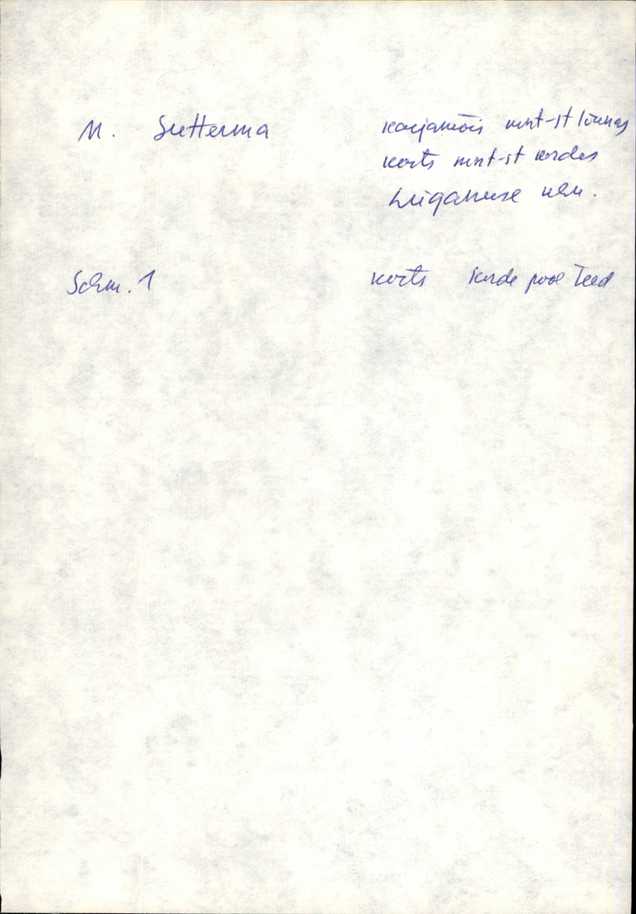 M. Sutterma karjamõis mnt-st lõunas
korts mnt-st kordes
Lüganuse
Schm. 1 korts korde pool teed